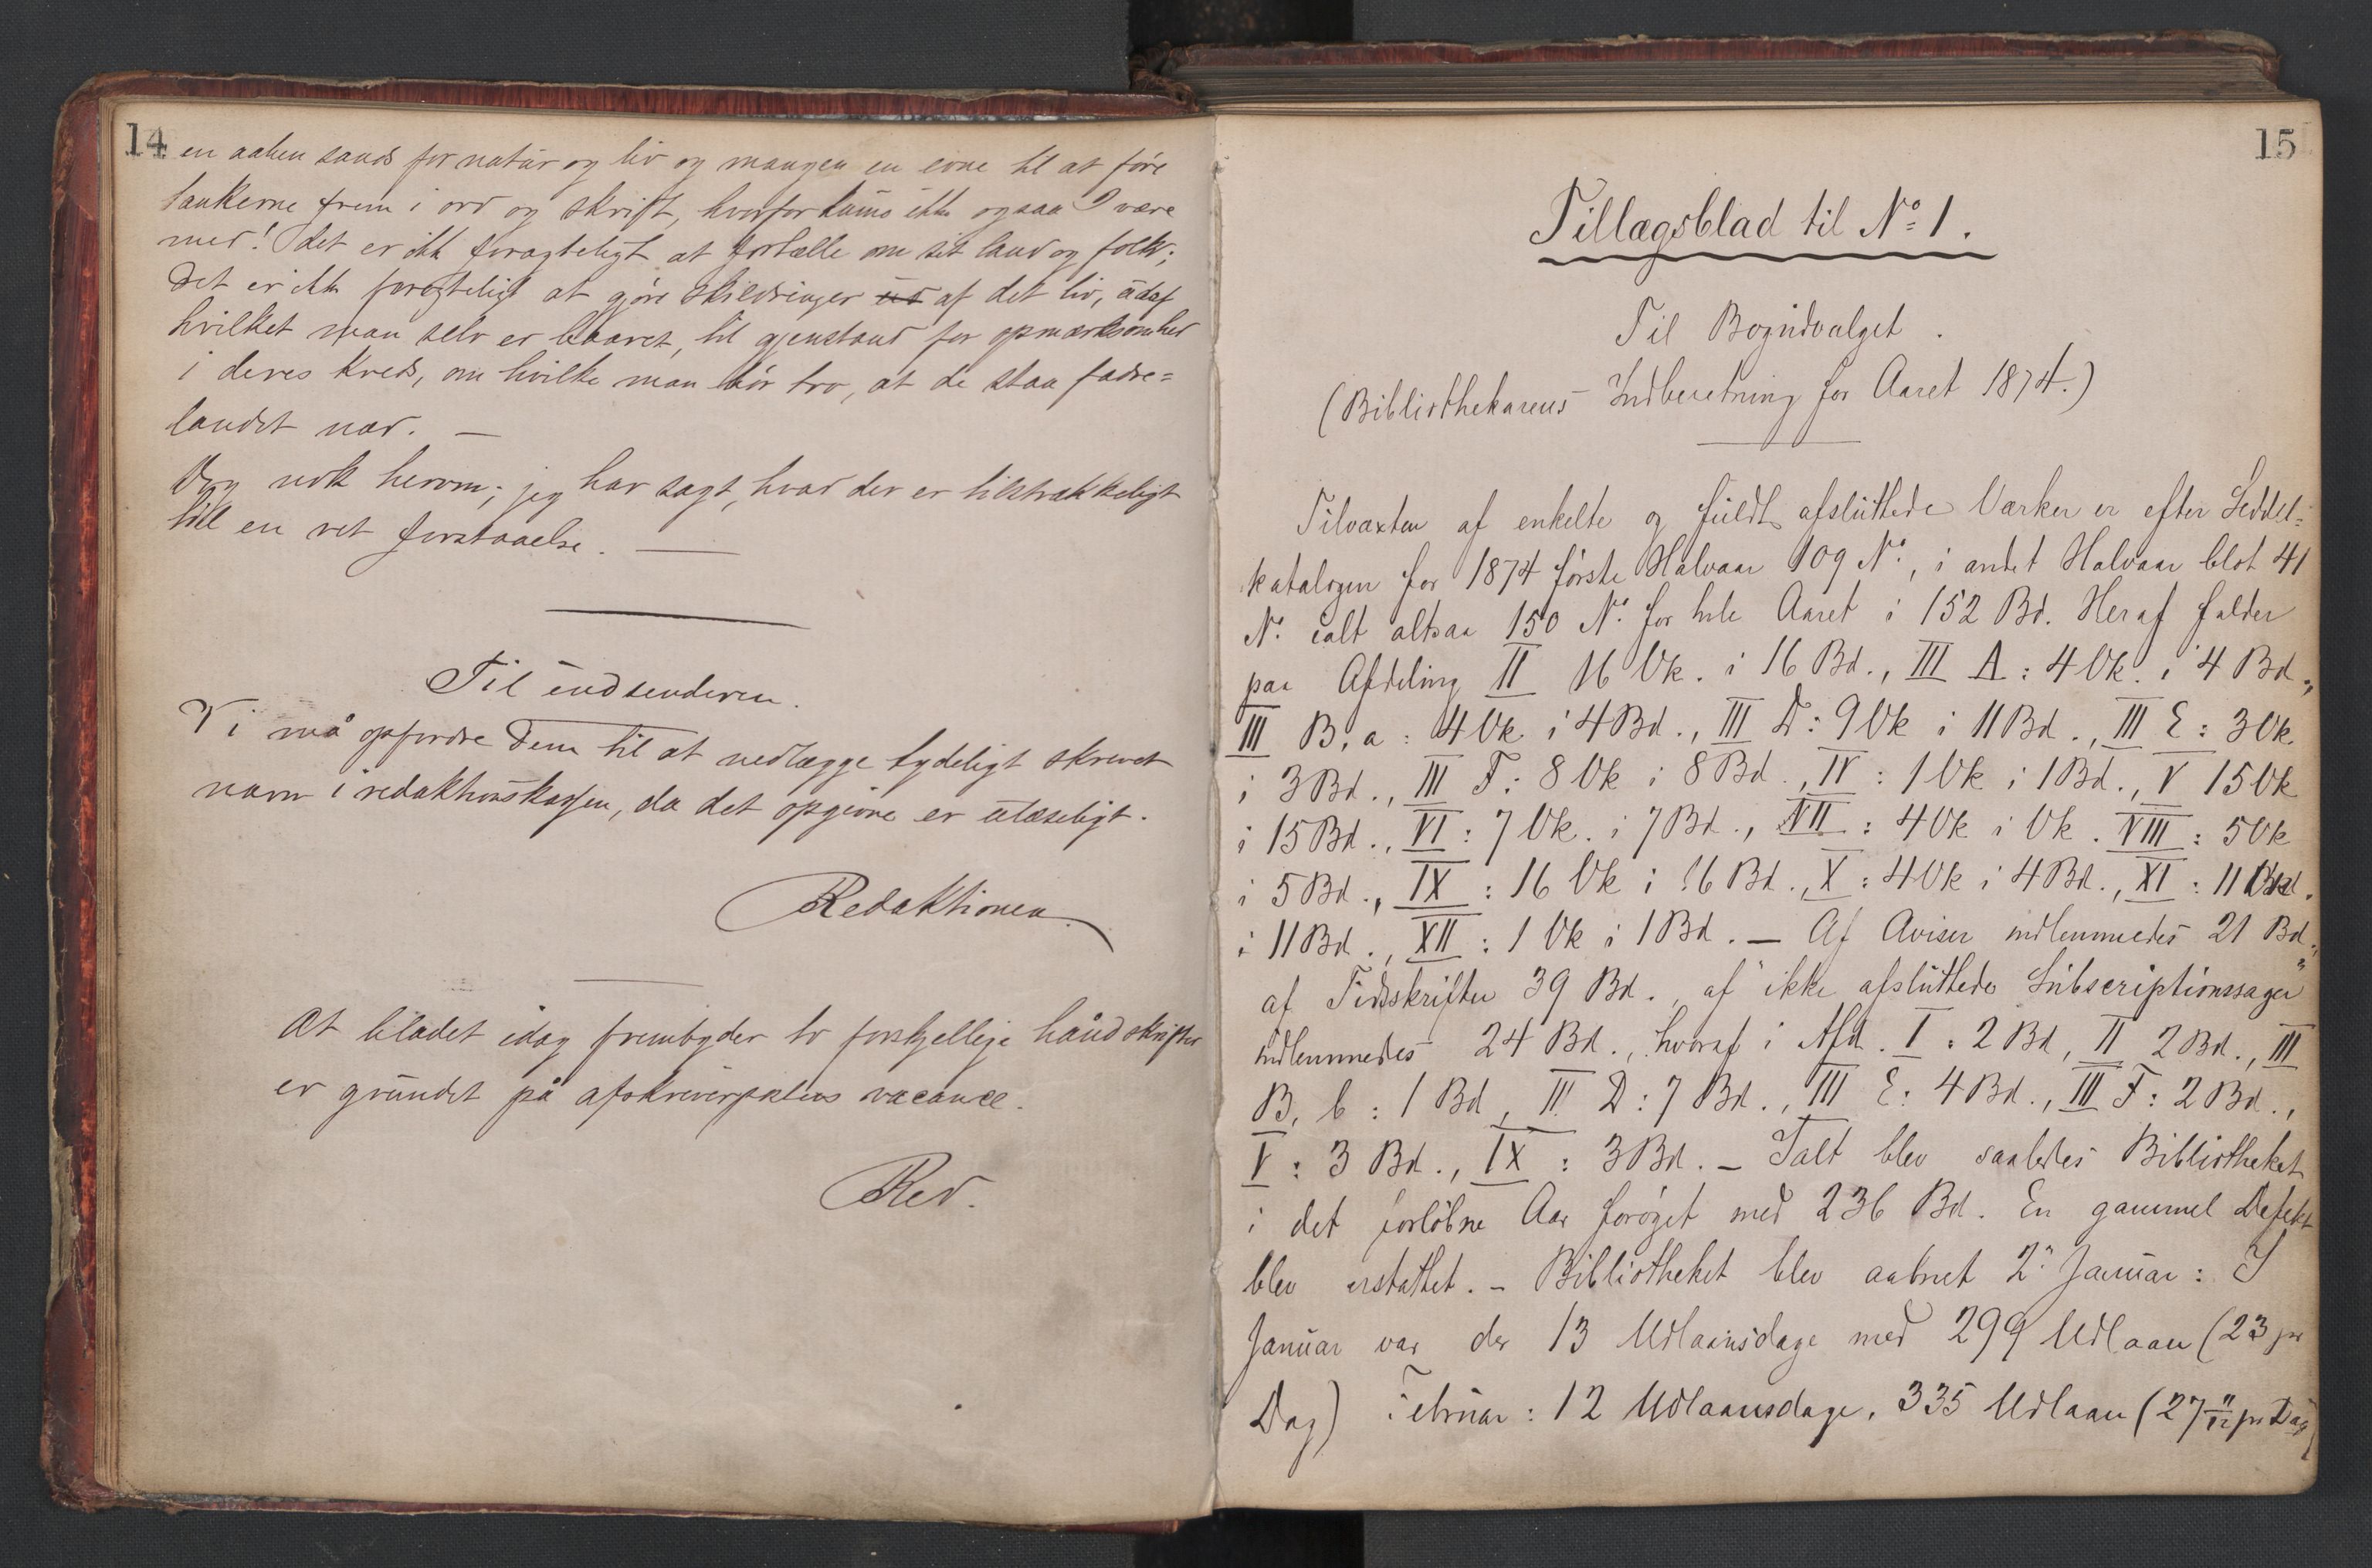 14
en aaben sands for natur og liv og mangen en evne til at före
tankerne frem i ord og skrift, hvorfor kūns ikke ogsaa I være
med! det er ikk foragteligt at fortælle om sit land og folk;
det er ikk foragteligt at gjöre skildringer ūd af det liv, ūdaf
hvilket man selv er baaret, til gjenstand for opmærksomhed
i deres kreds, om hvilke man bör tro, at de staa fædre=
landet nær. —
Dog nok herom; jeg har sagt, hvad der er tilstrækkeligt
till en ret forstaaelse. —
Til indsenderen.
Vi må opfordre Dem til at nedlægge tydeligt skrevet
navn i redaktionskassen, da det opgivne er ulæseligt.
Redaktionen.
At bladet idag frembyder to forskjellige håndskrifter
er grūndet på afskriverpostens vacance.
Red.
15
Tillægsblad til No 1.
Til Bogūdvalget.
(Bibliothekarens Indberetning for Aaret 1874.)
Tilvæxten af enkelte og fūldt afslūttede Værker er efter Seddel=
katalogen for 1874 förste Halvaar 109 No, i andet Halvaar blot 41
No. ialt altsaa 150 No for hele Aaret i 152 Bd. Heraf falder
paa Afdeling II 16 Vk. i 16 Bd., III A: 4 Vk. i 4 Bd.,
III B, a: 4 Vk i 4 Bd., III D: 9 Vk i 11 Bd., III E: 3 Vk.
i 3 Bd., III F: 8 Vk i 8 Bd., IV: 1 Vk i 1 Bd., V 15 Vk
i 15 Bd., VI: 7 Vk. i 7 Bd., VII: 4 Vk i Vk. VIII: 5 Vk
i 5 Bd., IX: 16 Vk i 16 Bd., X: 4 Vk i 4 Bd., XI: 11 Vk.
i 11 Bd., XII: 1 Vk i 1 Bd. — Af Aviser indlemmedes 21 Bd.,
af Tidsskrifter 39 Bd., af "ikke afslūttede Sūbscriptionssager"
indlemmedes 24 Bd., hvoraf i Afd. I: 2 Bd, II 2 Bd., III
B, b: 1 Bd, III D: 7 Bd., III E: 4 Bd., III F: 2 Bd.,
V: 3 Bd., IX: 3 Bd. — Ialt blev saaledes Bibliotheket
i det forlöbne Aar foröget med 236 Bd. En gammel Defekt
blev erstattet. — Bibliotheket blev aabnet 2. Janūar: I
Janūar var der 13 Udlaansdage med 299 Udlaan (23 pr
Dag) Febrūar: 12 Udlaansdage, 335 Udlaan (27 11/12 pr Dag)